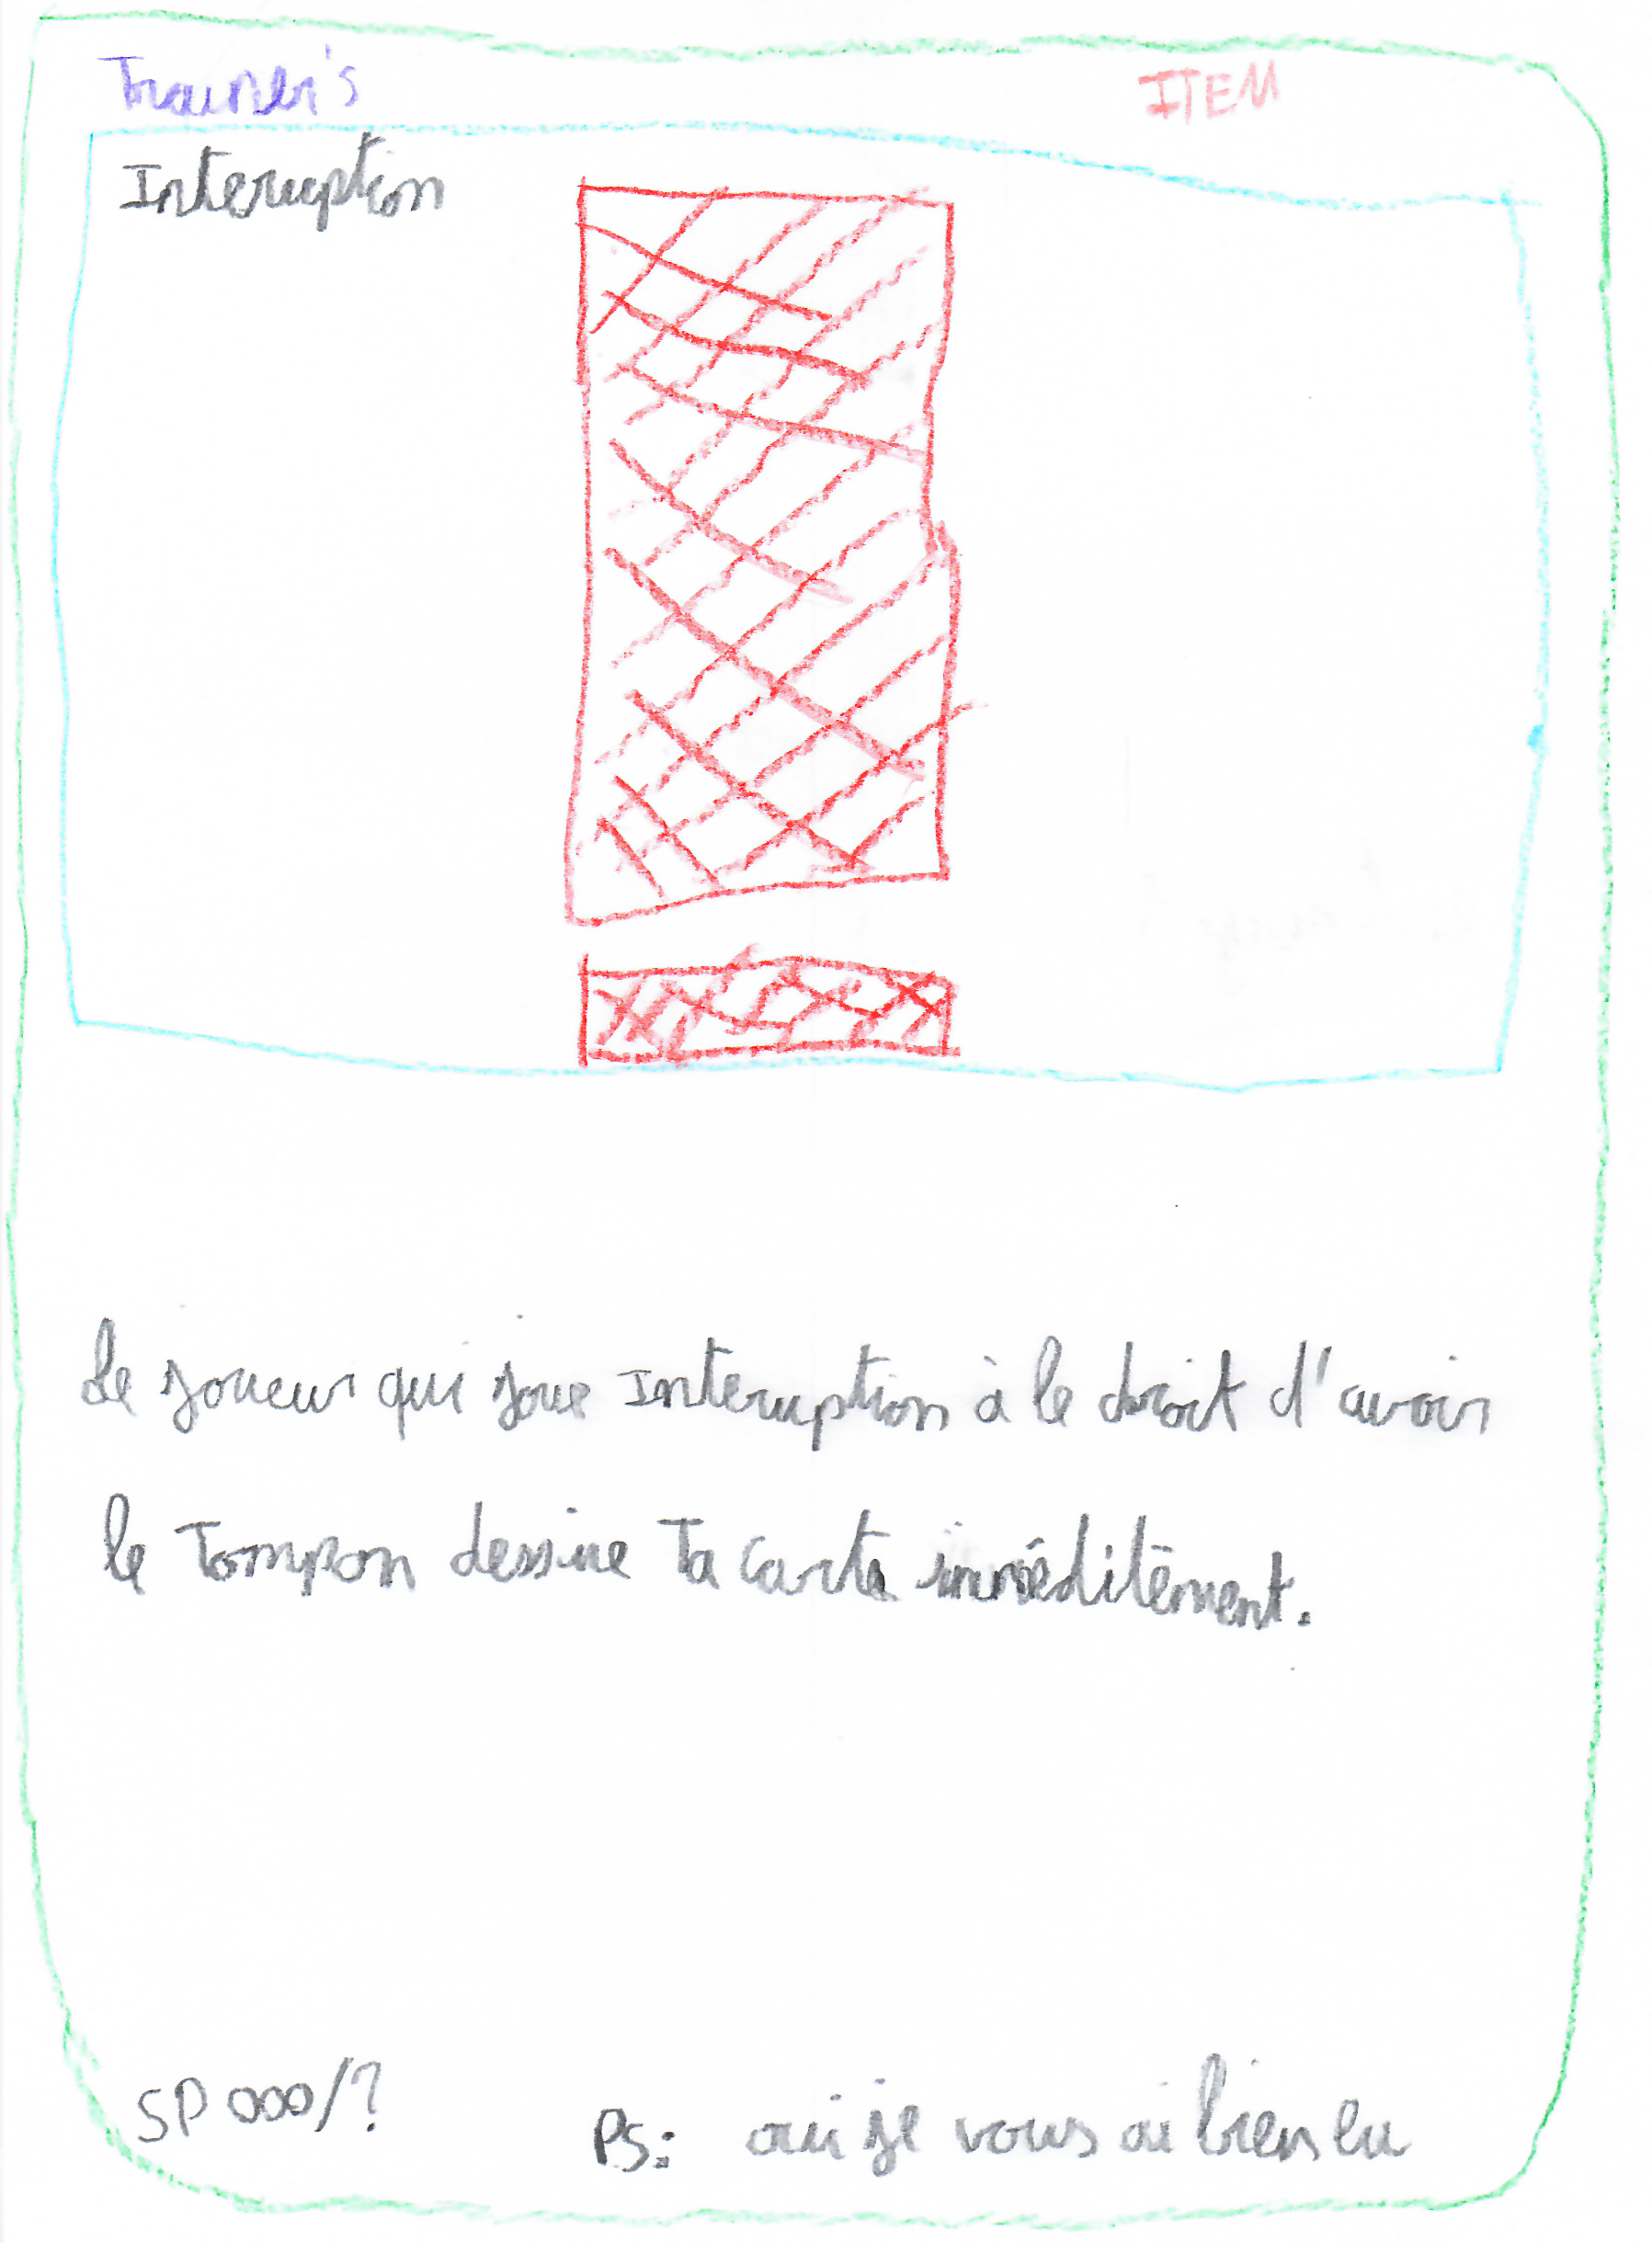 Trainer's
ITEM
Interuption
Le joueur qui joue Interuption à le droit d'avoir
le Tompon dessine Ta carte imméditement.
SP 000/?
PS: oui je vous ai bien eu